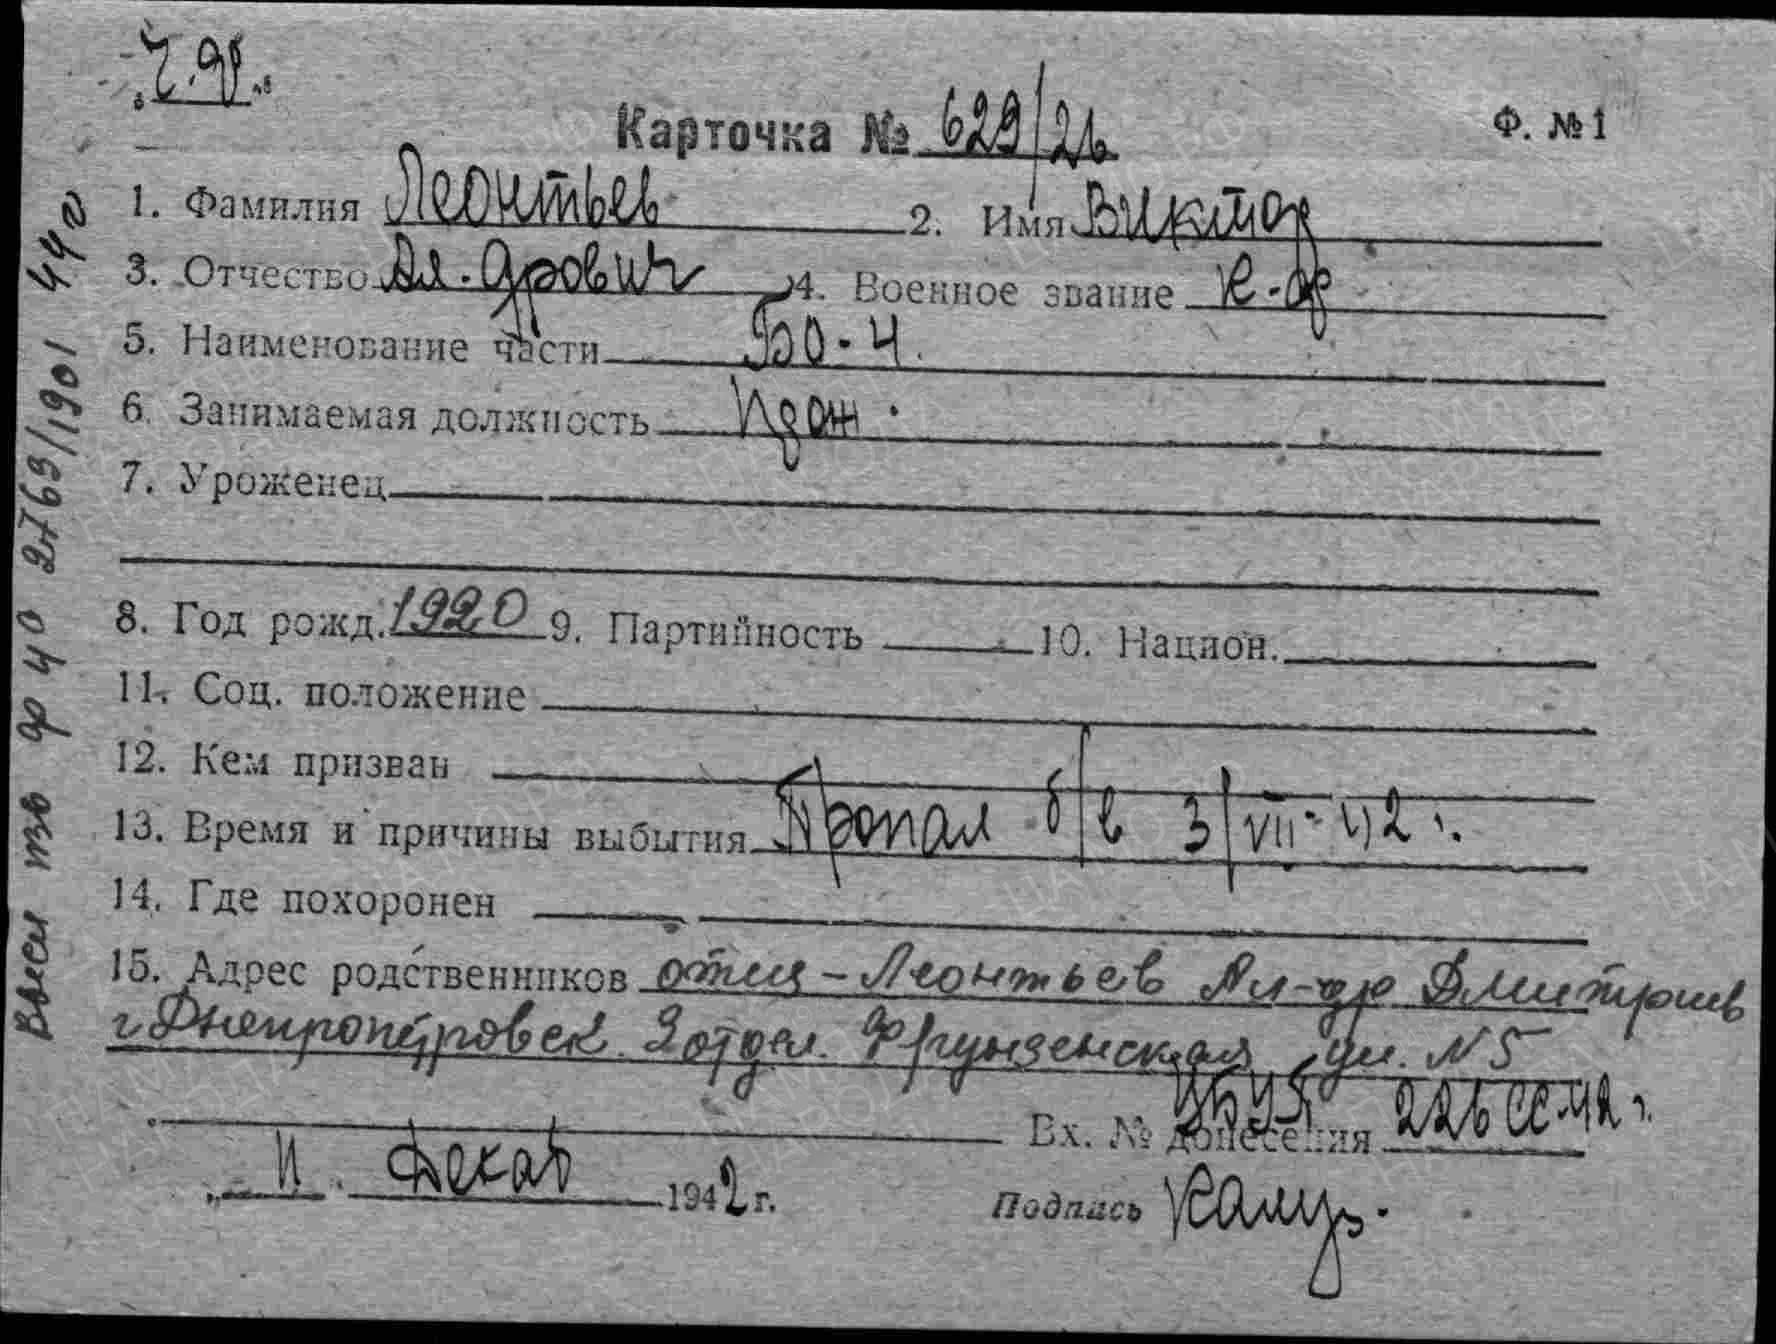 Ч.Ф.
Карточка № 629/26 Ф. № 1
1. Фамилия Леонтьев 2. Имя Виктор
3. Отчество Ал-дрович 4. Военное звание к-ф
5. Наименование части БО-Ч.
6. Занимаемая должность
7. Уроженец
8. Год рожд. 1920 9. Партийность 10. Национ.
11. Соц. положение
12. Кем призван
13. Время и причины выбытия Пропал б/в 3/VII-42 г.
14. Где похоронен
15. Адрес родственников отец - Леонтьев Ал-др Дмитриев
г Днепропетровск. 2 отдел. Фрунзенская ул. N 5
Вх. № донесения УБУП 226 СС-42 г.
11 Декаб 1942 г. Подпись
ф 40 2763/1901 44 г